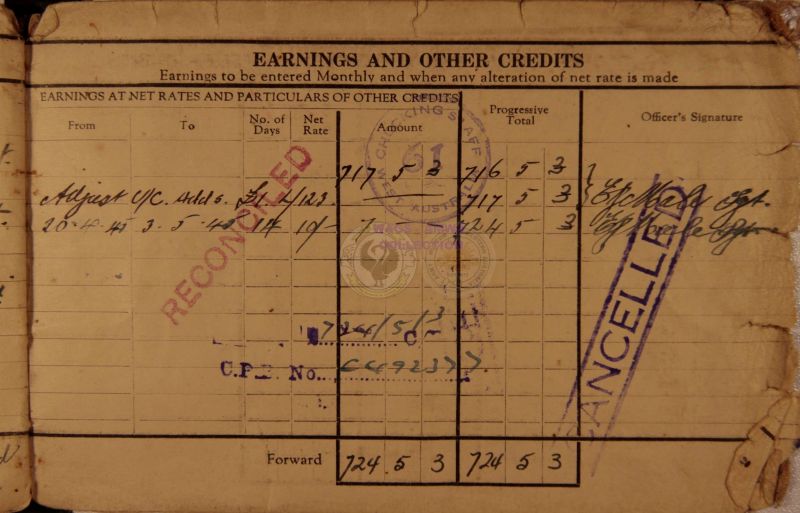 EARNINGS AND OTHER CREDITS
Earnings to be entered Monthly and when any alteration of net rate is made
EARNINGS AT NET RATES AND PARTICULARS OF OTHER CREDITS
From To No. of Days Net Rate Amount Progressive Total Officer's Signature
717 5 3 716 5 3
Adjust U/C. Adds. £1 717 5 3 Sgt.
20-4-45 3-5-45 14 10/- 7 724 5 3
CHECKING STAFF
61
WEST. AUSTRALIA
RECONCILED
CANCELLED
COLLECTION
724/5/3
C.P.F. No. C492377.
Forward 724 5 3 724 5 3